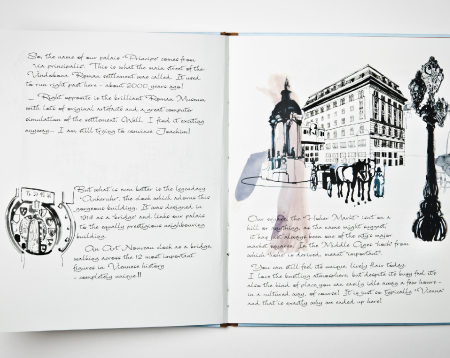 So, the name of our palais "Principe" comes from
"via principalis". This is what the main street of the
Vindobona Roman settlement was called. It used
to run right past here - about 2000 years ago!
... Right opposite is the brilliant Roman Museum
with lots of original artefacts and a great computer
simulation of the settlement. Well, I find it exciting
anyway... I am still trying to convince Joachim!
But what is even better is the legendary
"Ankeruhr", the clock which adorns this
gorgeous building. It was designed in
1914 as a 'bridge' and links our palais
to the equally prestigious neighbouring
building.
An Art Nouveau clock as a bridge,
walking across the 12 most important
figures in Viennese history
- completely unique!!
Our the "Hoher Markt" isn't on a
hill or anything, as the name might suggest,
it has just always been one of the city's major
market squares. In the Middle Ages "hoch" from
which "hoher" is derived, meant "important".
You can still feel its unique lively flair today.
I love the bustling atmosphere, but despite its buzz feel it's
also the kind of place you can easily idle away a few hours -
in a cultured way, of course! It is just so typically "Vienna"
and that is exactly why we ended up here!